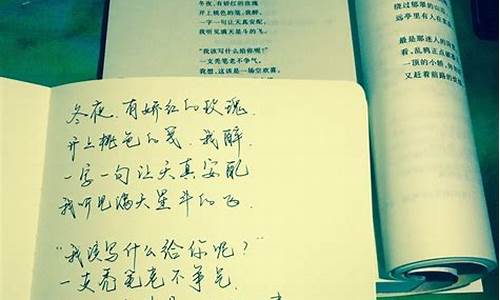 冬夜，有娇红的玫瑰
开上桃色的笺，我醉，
一字一句让天真安配，
我听见满天星斗的飞。
“我该写什么给你呢？”
一支秃笔老不争气。
我想，这该是一场空欢喜。
绕过郁翠的山
远亭里有人在
最是那迷人的
看，乱鸦正点
一顶的小轿，
又赶着前路的
冬夜，有娇红的玫瑰.
开上桃色的笺.我醉.
一字一句让天真安配
我听见满天星斗的飞.
“我该写什么给你呢？”
一支秃笔老不争气.